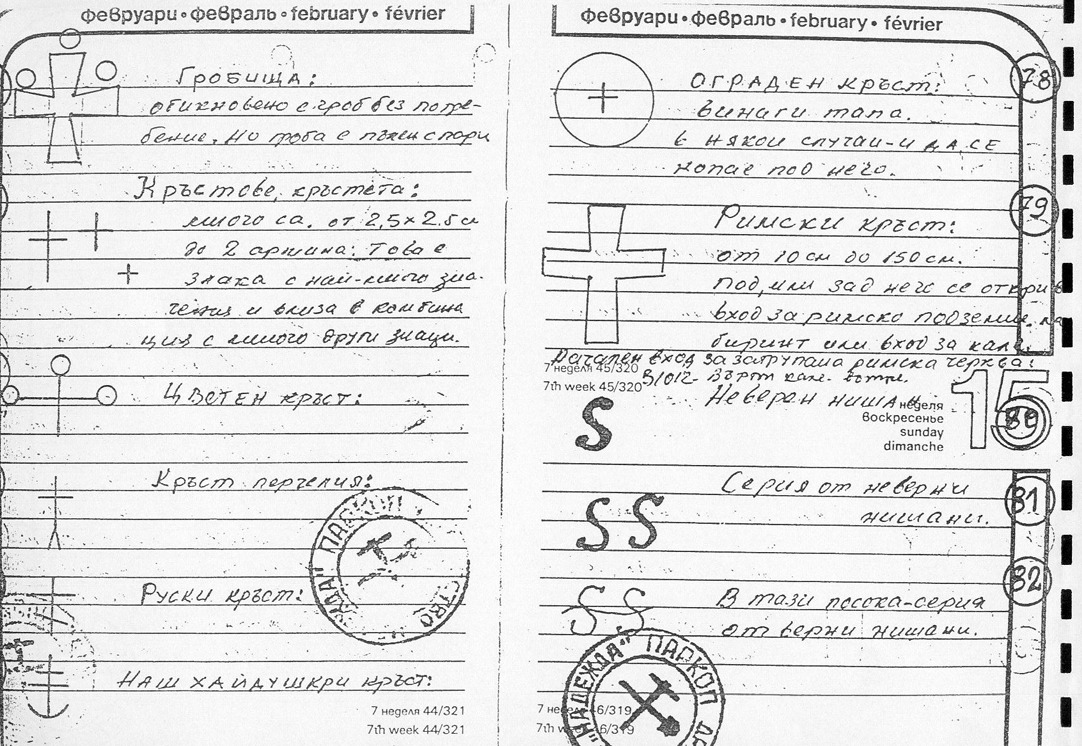 февруари • февраль • february • février
Гробища:
обикновено с гроб без погре-
бение. Но гроба е пълен с пари
Кръстове, кръстета:
много са. от 2,5х2.5 см
до 2 аршина: Това е
знака с най-много зна-
чения и влиза в комбина
ция с много други знаци.
Цветен кръст:
Кръст перчелия:
Руски кръст:
Наш хайдушкри кръст:
7 неделя 44/321
7th week 44/321
февруари • февраль • february • février
78
ОГРАДЕН кръст:
винаги тапа.
в някои случаи-и ДА СЕ
копае под него.
79
Римски кръст:
от 10 см до 150 см.
Под, или зад него се откри
вход за римско подземие,
биринт или вход за
Начален вход за затрупана римска черква:
7 неделя 45/320
7th week 45/320
Неверен нишан
15
80
неделя
воскресенье
sunday
dimanche
S
81
Серия от неверни
нишани.
S S
82
В тази посока-серия
от верни нишани.
S S
"НАДЕЖДА" ПАРКОП
7 неделя 46/319
7th week 46/319